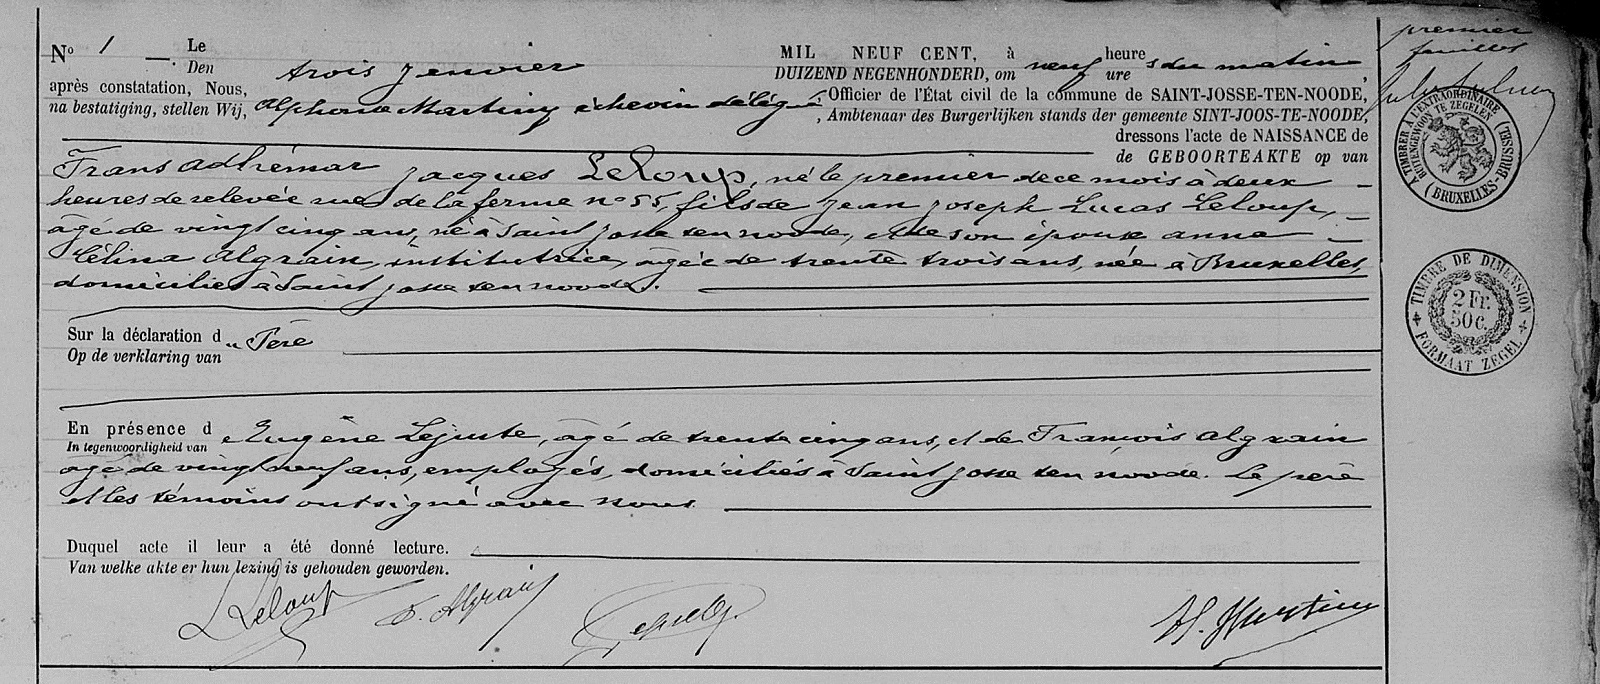 No 1 — Le trois janvier MIL NEUF CENT, à neuf heures du matin,
Den DUIZEND NEGENHONDERD, om ure
après constatation, Nous, Alphonse Martiny échevin délégué, Officier de l'État civil de la commune de SAINT-JOSSE-TEN-NOODE,
na bestatiging, stellen Wij, Ambtenaar des Burgerlijken stands der gemeente SINT-JOOS-TE-NOODE,
dressons l'acte de NAISSANCE de
de GEBOORTEAKTE op van
Frans Adhémar Jacques Leloup, né le premier de ce mois à deux
heures de relevée rue de la ferme no 55, fils de Jean Joseph Lucas Leloup,
âgé de vingt cinq ans, né à Saint Josse ten noode, et de son épouse Anna
Célina Algrain, institutrice, âgée de trente trois ans, née à Bruxelles,
domiciliés à Saint Josse ten noode.
Sur la déclaration du Père
Op de verklaring van
En présence d'Eugène Lejuste, âgé de trente cinq ans, et de François Algrain
In tegenwoordigheid van
âgé de vingt neuf ans, employés, domiciliés à Saint Josse ten noode. Le père
et les témoins ont signé avec nous.
Duquel acte il leur a été donné lecture.
Van welke akte er hun lezing is gehouden geworden.
Leloup F. Algrain Al. Martiny
premier
feuillet
A TIMBRER À L'EXTRAORDINAIRE
BUITENGEWOON TE ZEGELEN
BRUXELLES-BRUSSEL
TIMBRE DE DIMENSION
2 Fr.
50 c.
FORMAAT ZEGEL